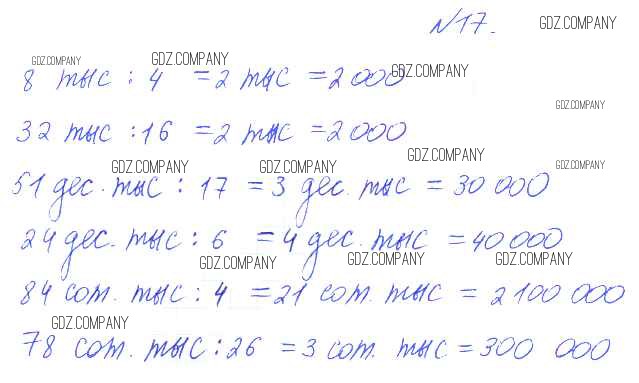 №17. GDZ.COMPANY
GDZ.COMPANY GDZ.COMPANY GDZ.COMPANY
8 тыс : 4 = 2 тыс = 2 000
GDZ.COMPANY
32 тыс : 16 = 2 тыс = 2 000
GDZ.COMPANY GDZ.COMPANY GDZ.COMPANY GDZ.COMPANY
51 дес. тыс : 17 = 3 дес. тыс = 30 000
24 дес. тыс : 6 = 4 дес. тыс = 40 000
GDZ.COMPANY GDZ.COMPANY GDZ.COMPANY
84 сот. тыс : 4 = 21 сот. тыс = 2 100 000
GDZ.COMPANY
78 сот. тыс : 26 = 3 сот. тыс = 300 000